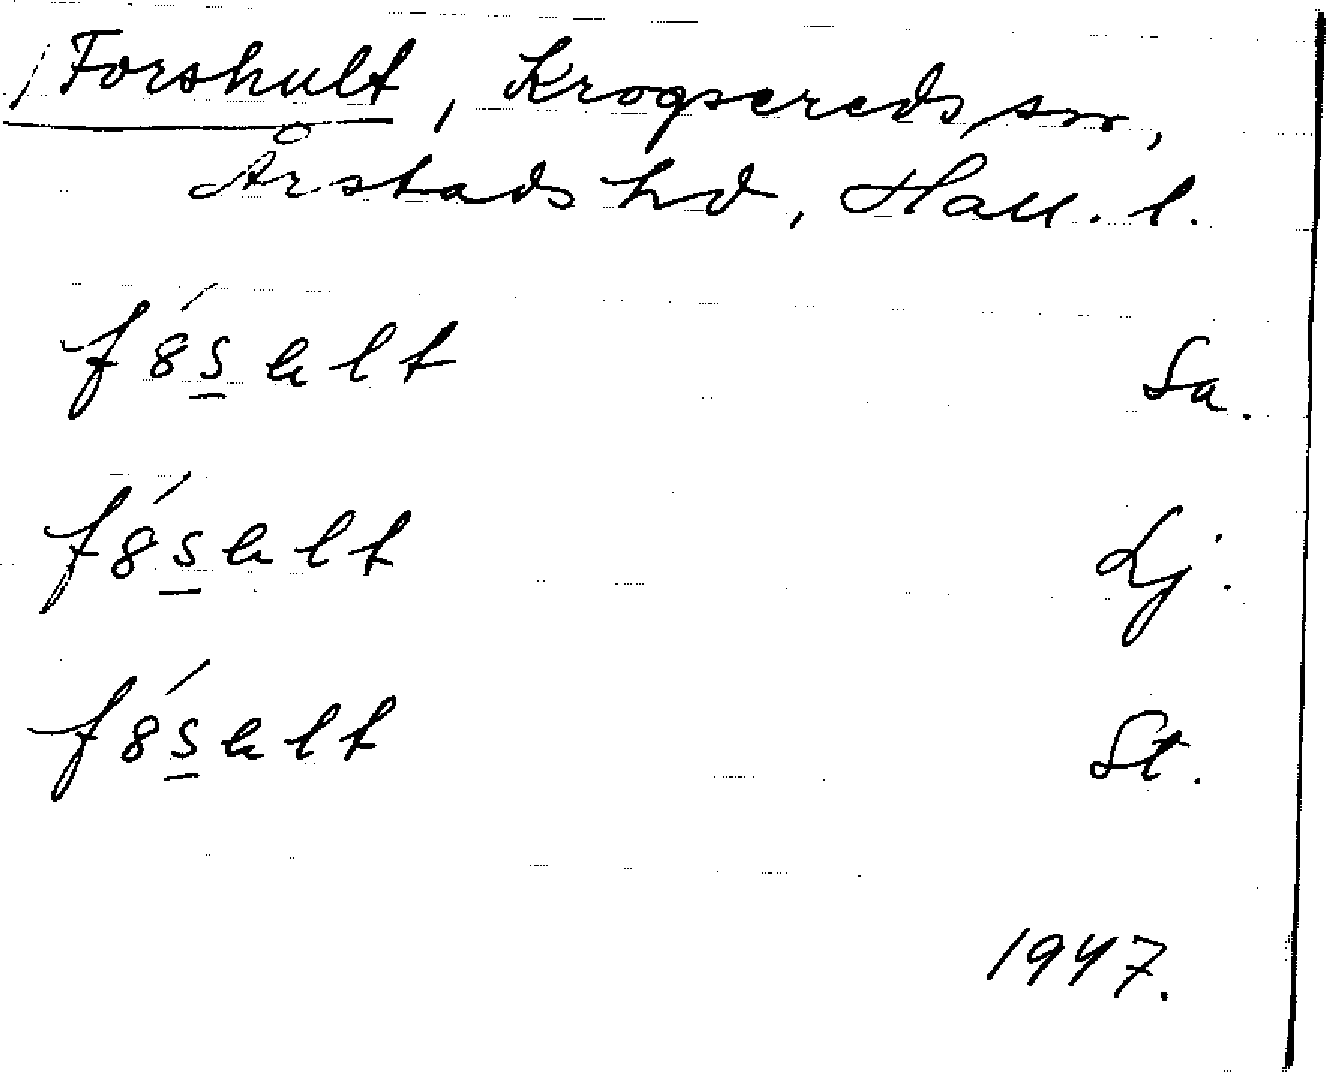 Forshult, Krogsereds sn,
Årstads hd, Hall. l.
f8́s̲alt Sa.
f8́s̲alt Lj.
f8́s̲alt St.
1947.